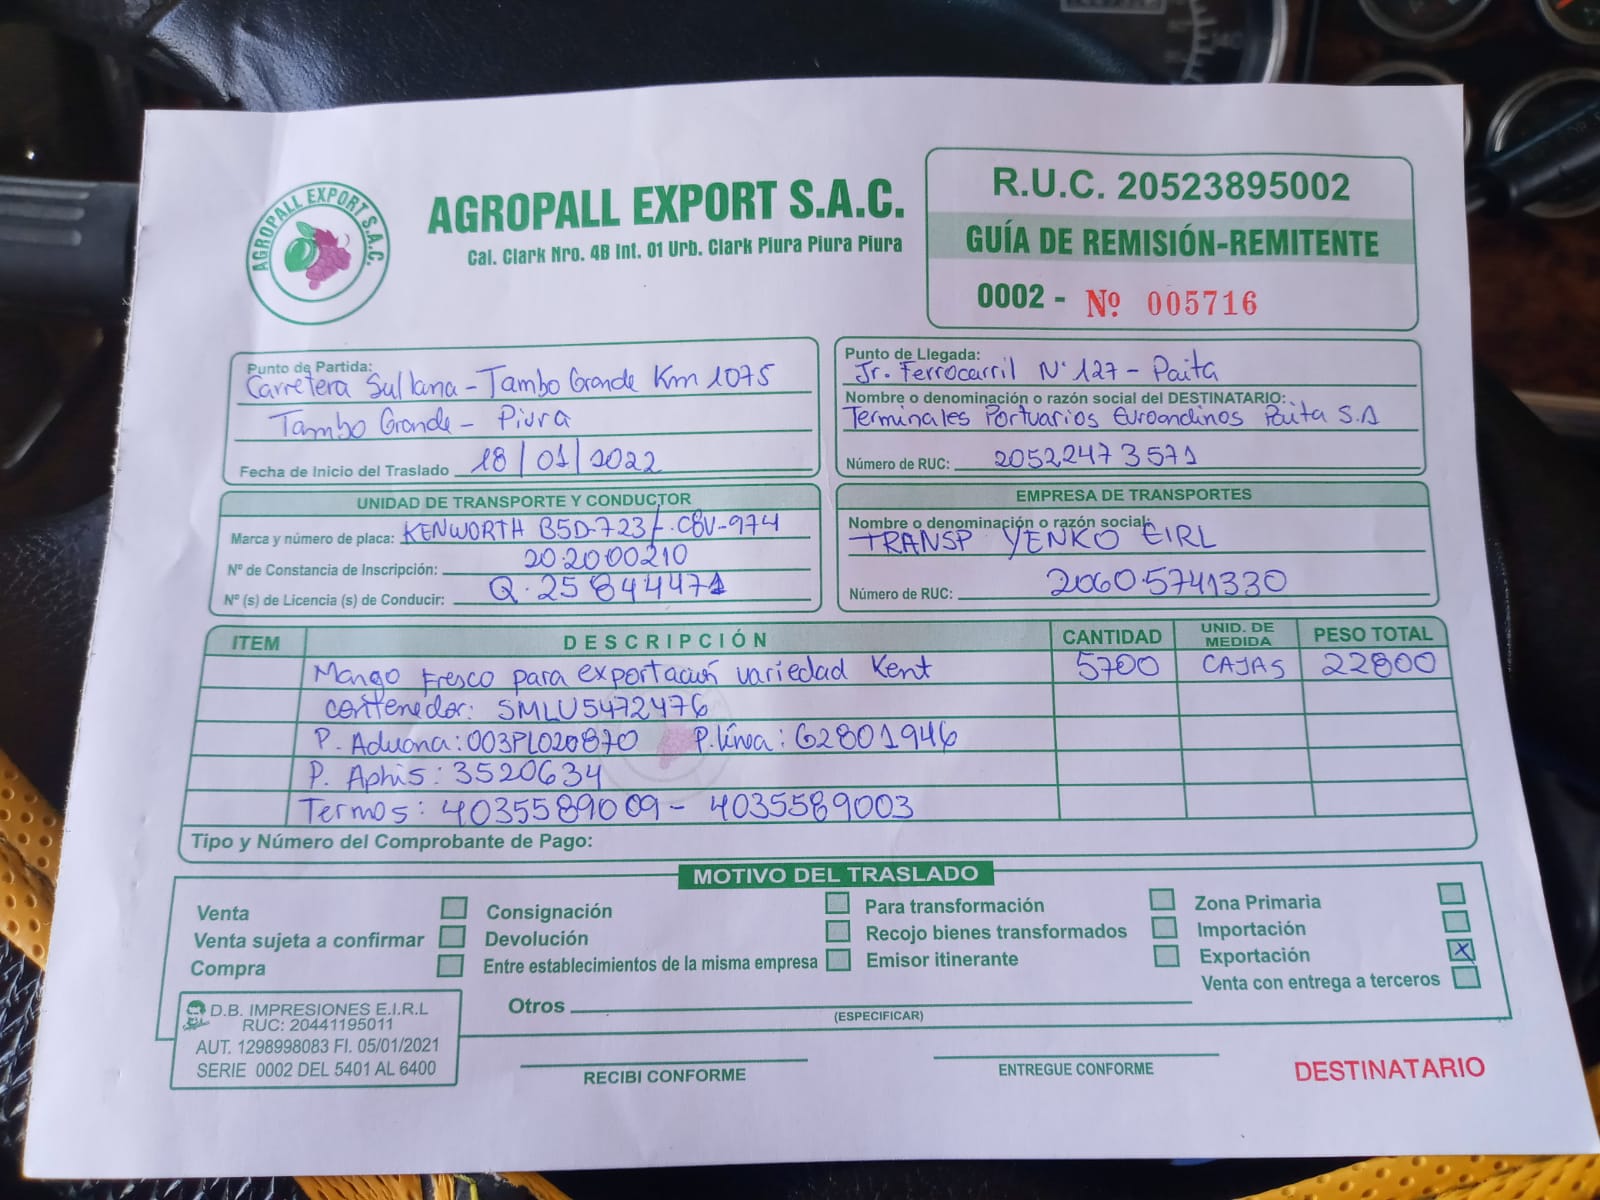 AGROPALL EXPORT S.A.C.
AGROPALL EXPORT S.A.C.
Cal. Clark Nro. 4B Int. 01 Urb. Clark Piura Piura Piura
R.U.C. 20523895002
GUÍA DE REMISIÓN-REMITENTE
0002 - Nº 005716
Punto de Partida:
Carretera Sullana - Tambo Grande Km 1075
Tambo Grande - Piura
Fecha de Inicio del Traslado 18/01/2022
Punto de Llegada:
Jr. Ferrocarril N° 127 - Paita
Nombre o denominación o razón social del DESTINATARIO:
Terminales Portuarios Euroandinos Paita S.A
Número de RUC: 20522473571
UNIDAD DE TRANSPORTE Y CONDUCTOR
Marca y número de placa: KENWORTH B5D-723/-C8V-974
Nº de Constancia de Inscripción: 202000210
Nº (s) de Licencia (s) de Conducir: Q.25844471
EMPRESA DE TRANSPORTES
Nombre o denominación o razón social:
TRANSP YENKO EIRL
Número de RUC: 20605741330
ITEM DESCRIPCIÓN CANTIDAD UNID. DE MEDIDA PESO TOTAL
Mango Fresco para exportación variedad Kent 5700 CAJAS 22800
contenedor: SMLU5472476
P. Aduana: 003PL020870 P. línea: 62801946
P. Aphis: 3520634
Termos: 4035589009 - 4035589003
Tipo y Número del Comprobante de Pago:
MOTIVO DEL TRASLADO
Venta
Venta sujeta a confirmar
Compra
Consignación
Devolución
Entre establecimientos de la misma empresa
Para transformación
Recojo bienes transformados
Emisor itinerante
Zona Primaria
Importación
Exportación X
Venta con entrega a terceros
Otros
(ESPECIFICAR)
D.B. IMPRESIONES E.I.R.L
RUC: 20441195011
AUT. 1298998083 FI. 05/01/2021
SERIE 0002 DEL 5401 AL 6400
RECIBI CONFORME
ENTREGUE CONFORME
DESTINATARIO